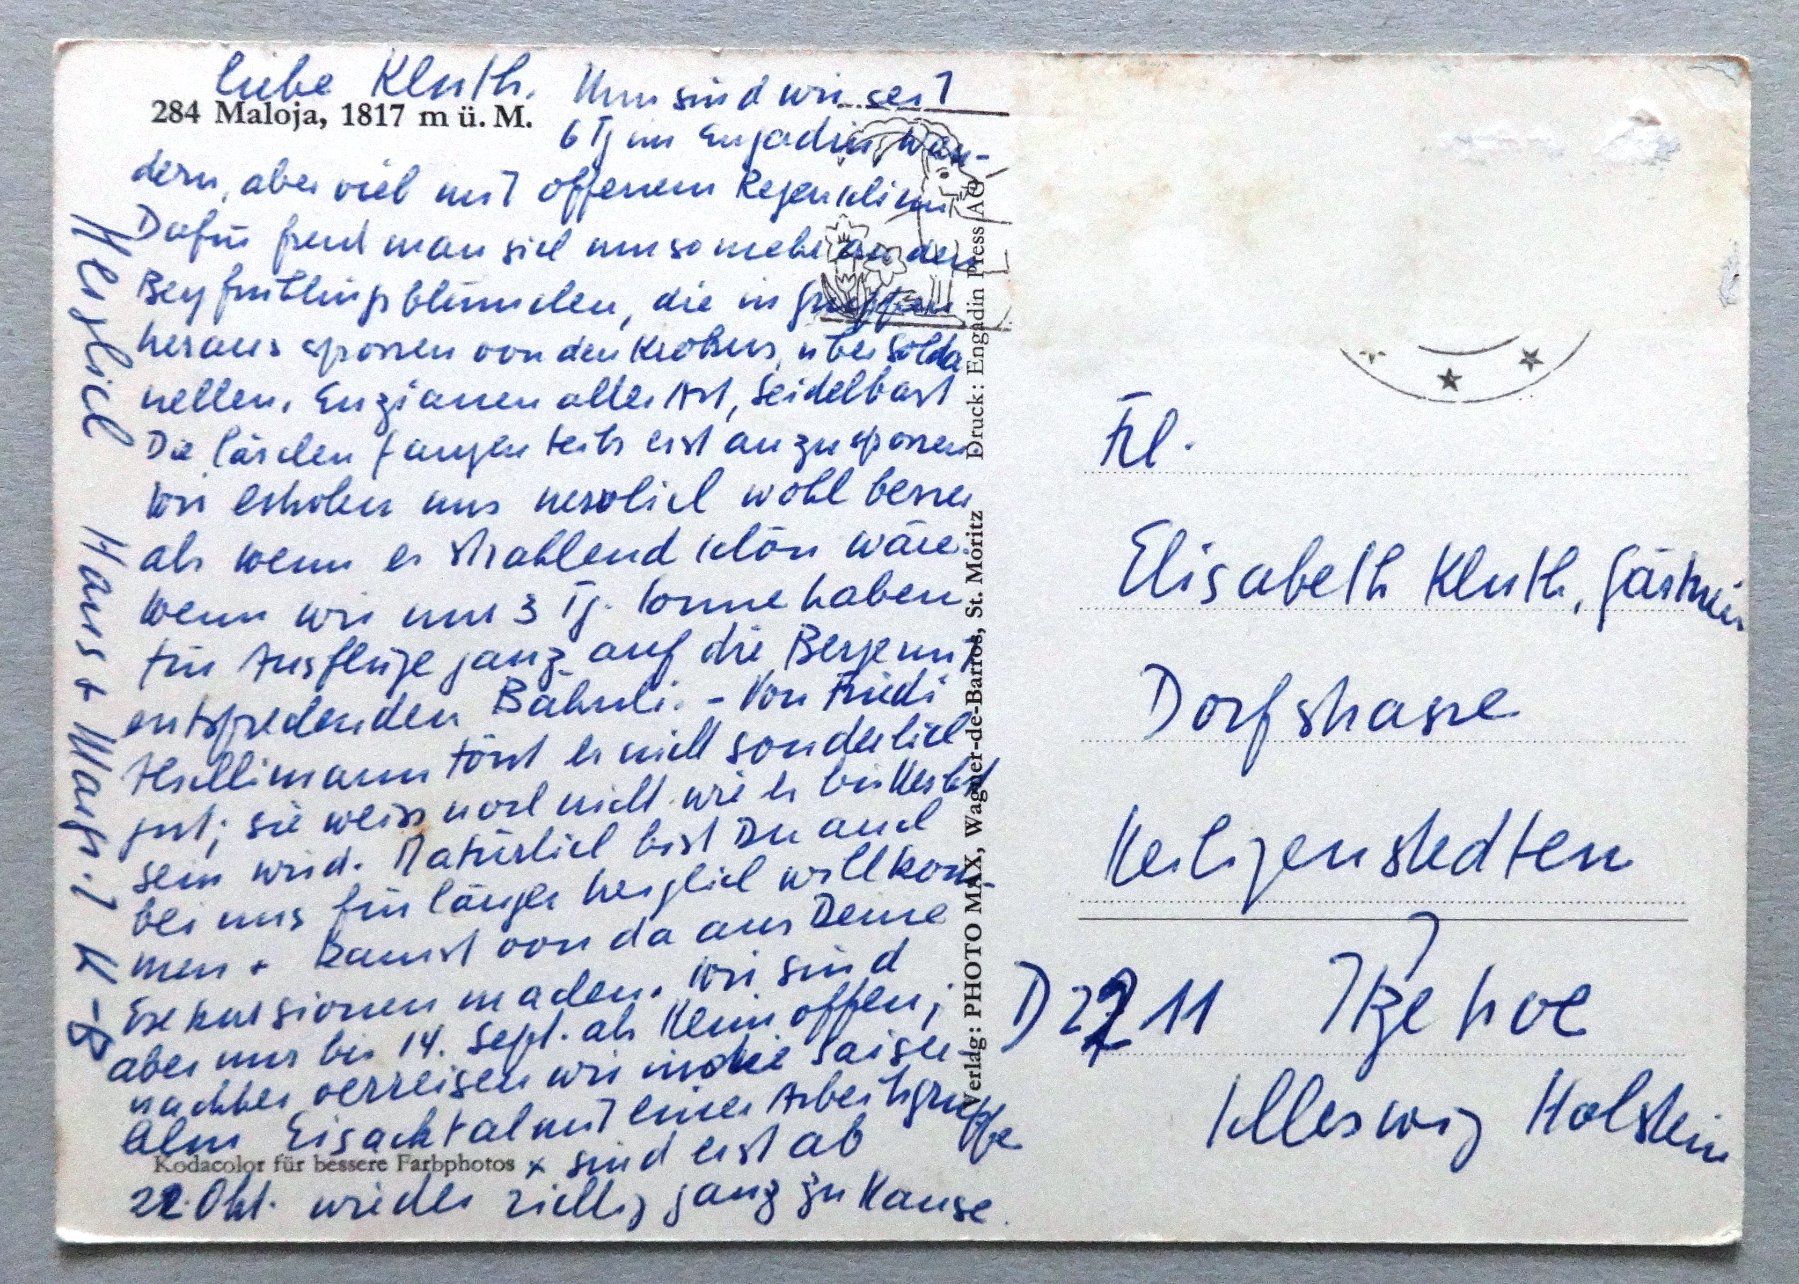 liebe Kluth. Nun sind wir seit
284 Maloja, 1817 m ü. M.
6 Tg im Engadin wan-
dern, aber viel mit offenem Regenschirm
Dafür freut man sich umso mehr an den
Bergfrühlingsblümchen, die in
heraus sprossen von den Krokus, über Solda
nellen, Enzianen aller Art, Seidelbast
Die Lärchen fangen teils erst an zu sprossen
Wir erholen uns herzlich wohl besser
als wenn es strahlend schön wäre.
Wenn wir nur 3 Tg. Sonne haben
für Ausflüge ganz auf die Berge mit
entsprechenden Bähnli. – Von Friedi
tönt es nicht sonderlich
gut; sie weiss noch nicht wie es im Herbst
sein wird. Natürlich bist Du auch
bei uns für länger herzlich willkom-
men + kannst von da aus Deine
Exkursionen machen. Wir sind
aber nur bis 14. Sept. als Heim offen;
nachher verreisen wir in die
Eisacktal mit einer Arbeitsgruppe
Kodacolor für bessere Farbphotos
+ sind erst ab
22. Okt. wieder richtig ganz zu Hause.
Herzlich Hans + Margrit K-B
Verlag: PHOTO MAX, Wagner-de-Barros, St. Moritz Druck: Engadin Press AG
Frl.
Elisabeth Kluth, Gärtnerin
Dorfstrasse
Heiligenstedten
D 2211 Itzehoe
Schleswig Holstein